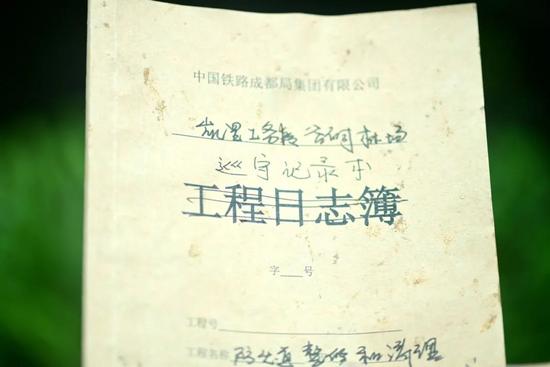 中国铁路成都局集团有限公司
凯里工务段谷硐林场
巡守记录本
工程日志簿
字___号
工程号
工程名称 防火道整修和清理